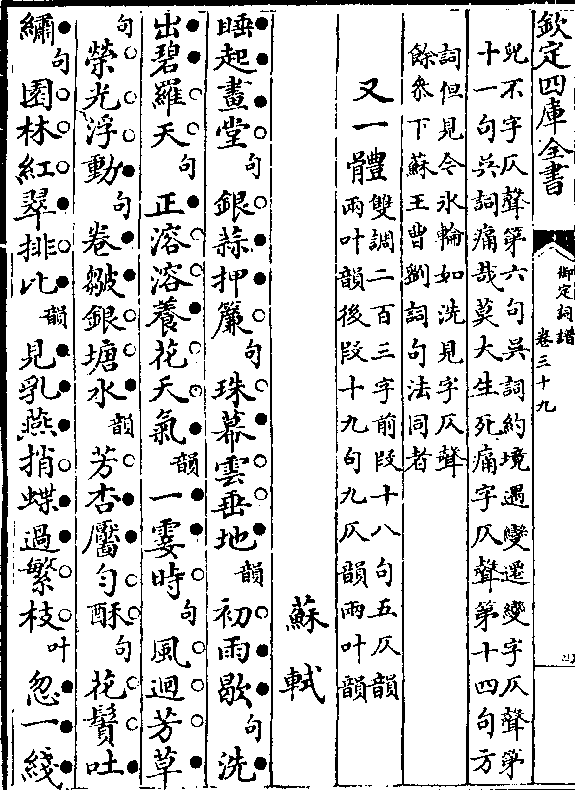 欽定四庫全書
御定詞譜
卷三十九
兕不字仄聲第六句吳詞約境遇變遷變字仄聲第
十一句吳詞痛哉莫大生死痛字仄聲第十四句方
詞但見令氷輪如洗見字仄聲
餘叅下蘇王曹劉詞句法同者
又一體雙調二百三字前段十八句五仄韻
兩叶韻後段十九句九仄韻兩叶韻
蘇軾
睡起畫堂句銀蒜押簾句珠幕雲垂地韻初雨歇句洗
出碧羅天句正溶溶養花天氣韻一霎時句風迴芳草
句榮光浮動句卷皺銀塘水韻芳杏靨勻酥句花鬚吐
繡句園林紅翠排比韻見乳燕捎蝶過繁枝叶忽一綫